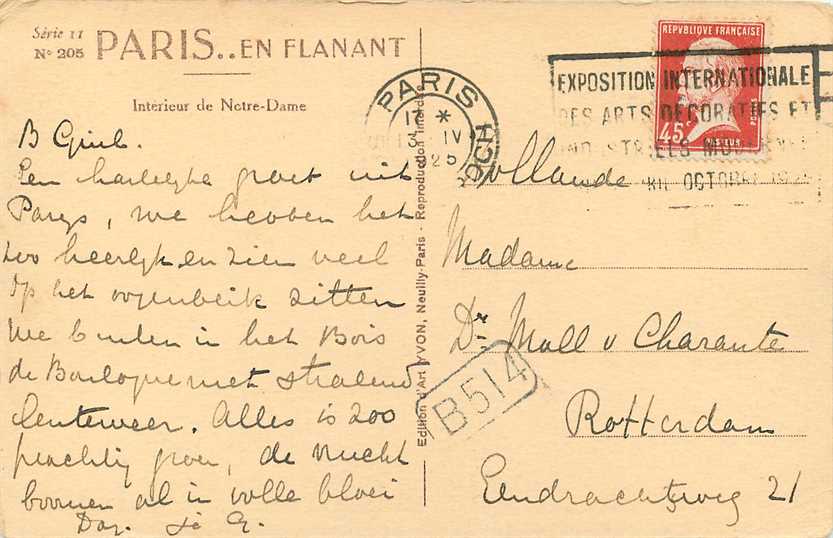 Série 11
Nº 205
PARIS..EN FLANANT
Intérieur de Notre-Dame
Een hartelijke groet uit
Parijs, we hebben het
zoo heerlijk en zien veel
Op het oogenblik zitten
we buiten in het Bois
de Boulogne met stralend
lenteweer. Alles is zoo
prachtig groen, de vrucht
boomen al in volle bloei
Dag.
Edition d'Art YVON, Neuilly-Paris - Reproduction interdite
PARIS
17 *
IV
25
REPVBLIQUE FRANÇAISE
45c
PASTEUR
EXPOSITION INTERNATIONALE
DES ARTS DECORATIFS ET
INDUSTRIELS MODERNES
OCTOBRE 1925
Hollande
Madame
Dr Moll v Charante
Rotterdam
Eendrachtsweg 21
B514